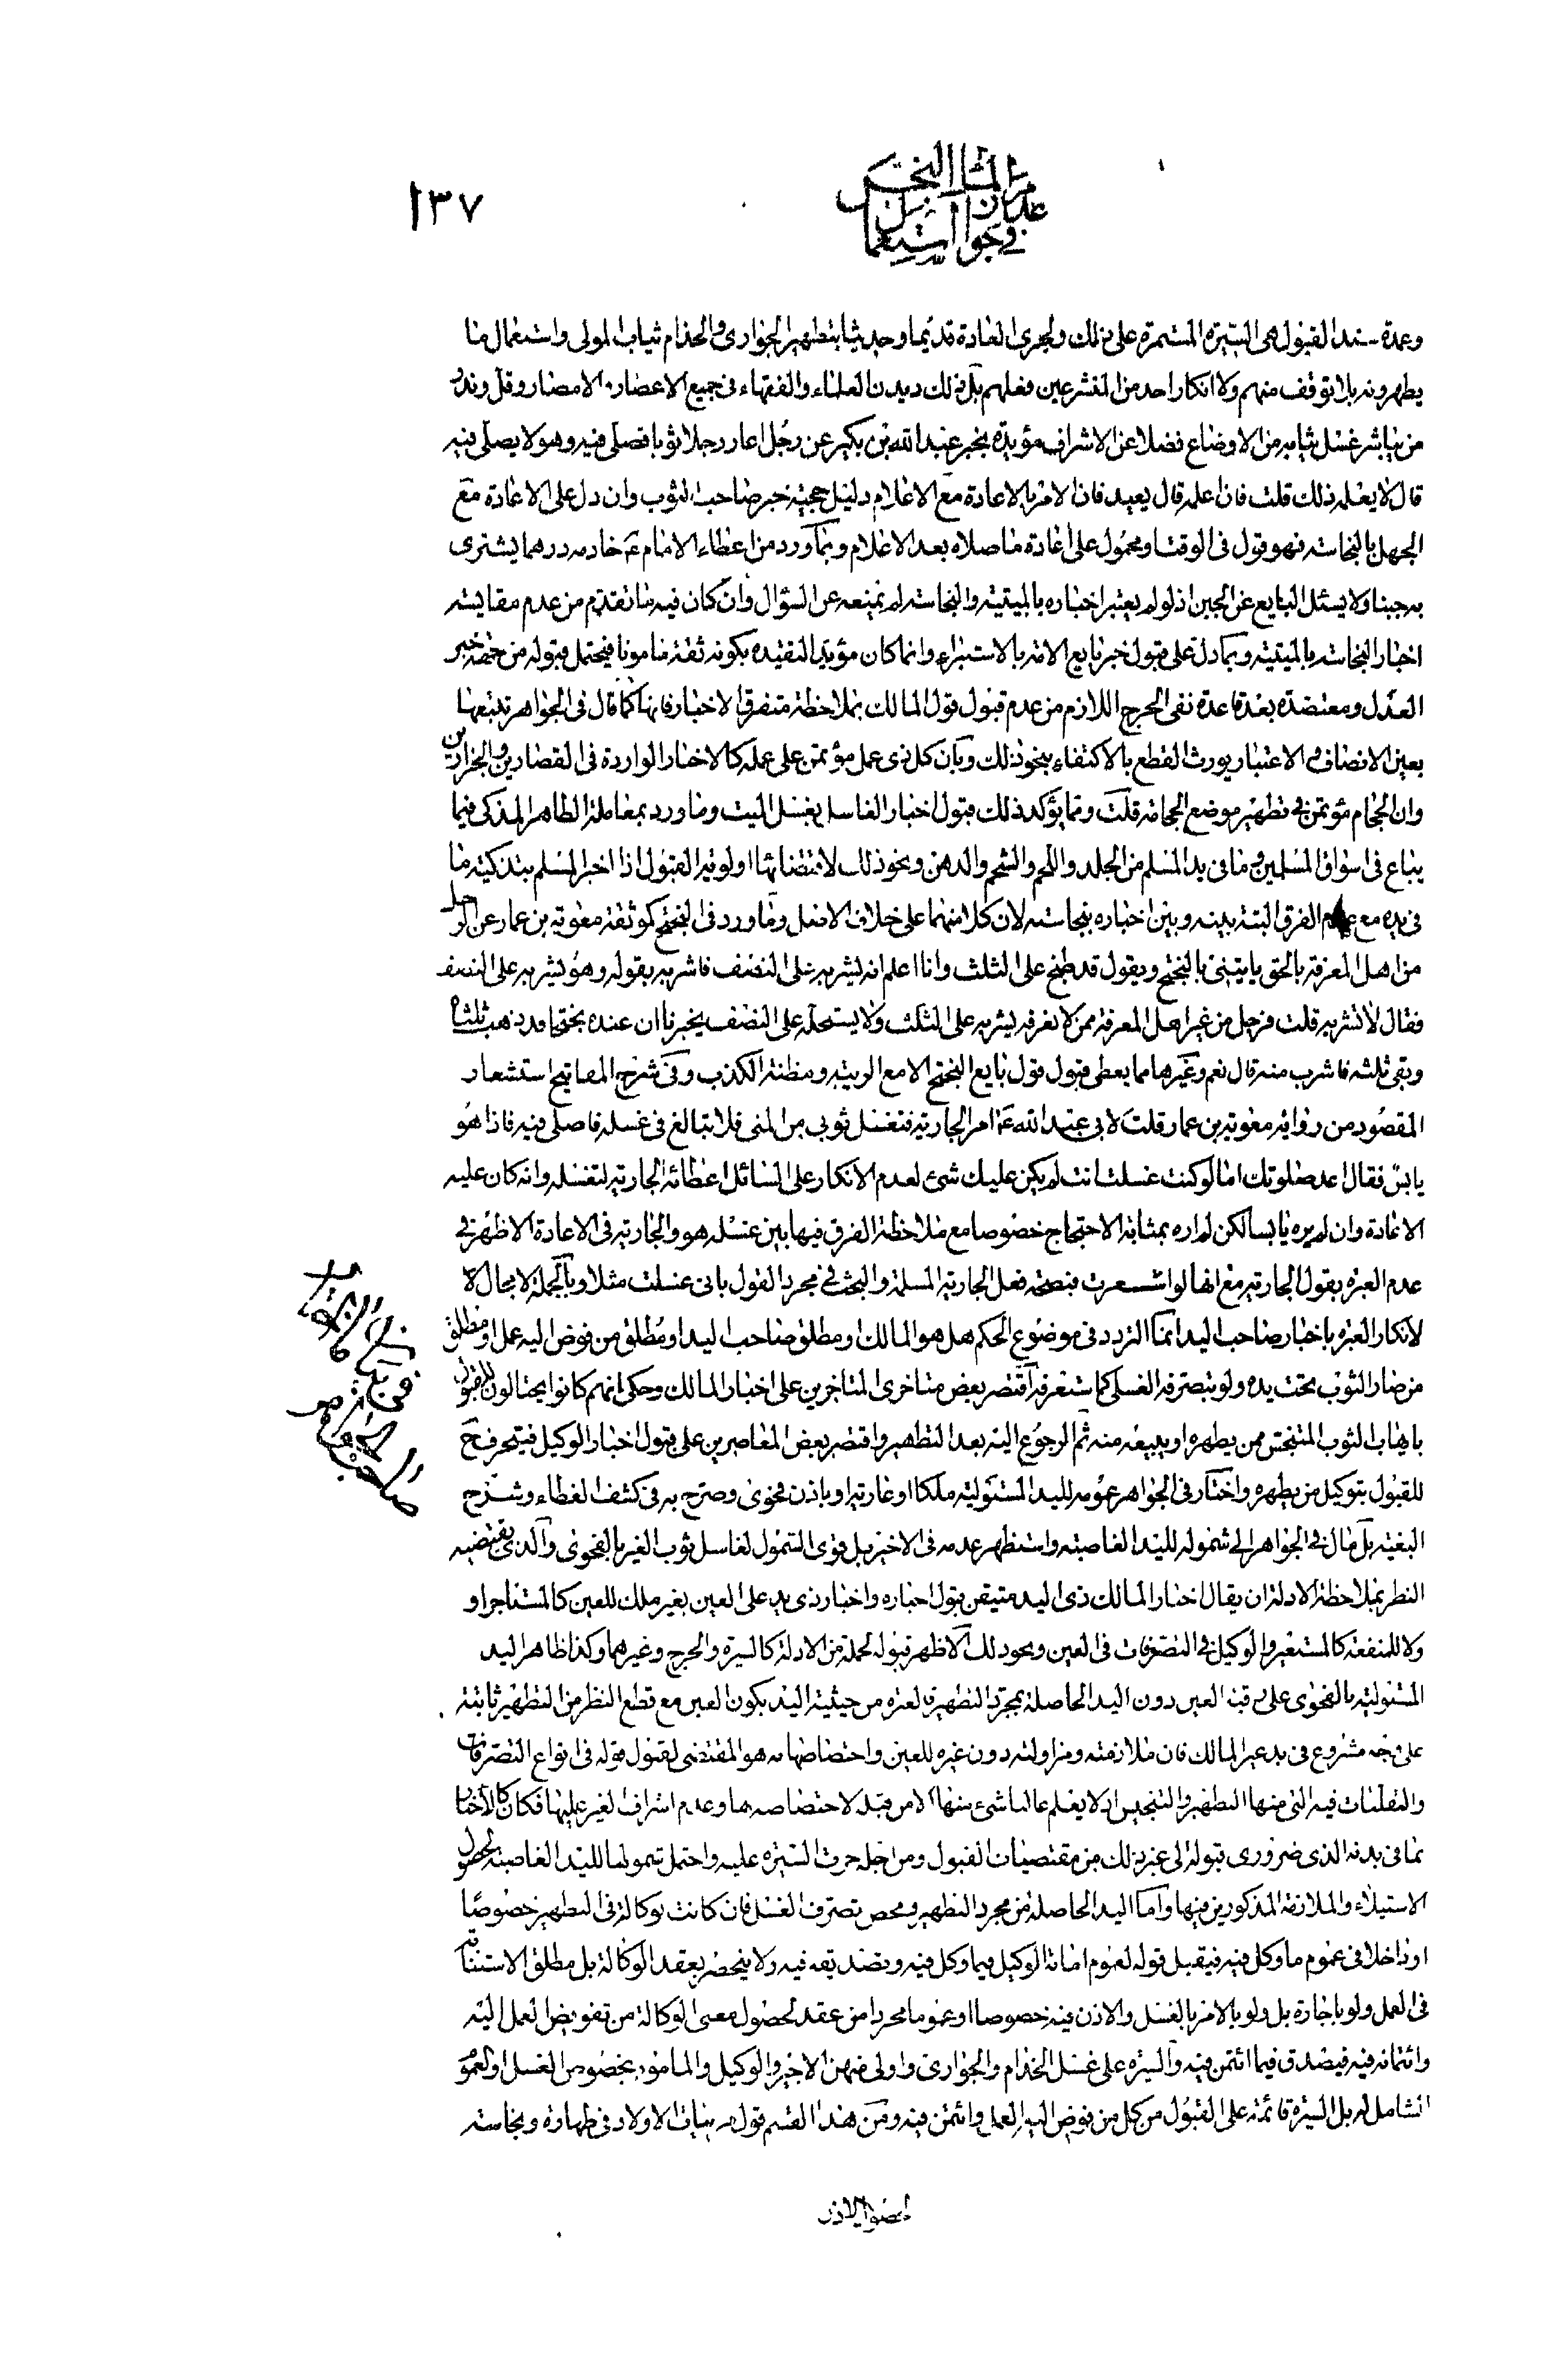 ١٣٧
وعمدة سند القبول هى السيرة المستمرة على ذلك ولجرى العادة قديما وحديثا بتطهير الجوارى والخدام ثياب المولى واستعمال ما
يطهرونه بلا توقف منهم ولا انكار احد من المتشرعين فعلهم بل ذلك ديدن العلماء والفقهاء فى جميع الاعصار والامصار وقل وندر
من يباشر غسل ثيابه من الاوضاع فضلا عن الاشراف مؤيدة بخبر عبد الله بن بكير عن رجل اعار رجلا ثوبا فصلى فيه وهو لا يصلى فيه
قال لا يعلمه ذلك قلت فان اعلمه قال يعيد فان الامر بالاعادة مع الاعلام دليل حجية خبر صاحب الثوب وان دل على الاعادة مع
الجهل بالنجاسة فهو قول فى الوقت او محمول على اعادة ما صلاه بعد الاعلام وبما ورد من اعطاء الامام ع خادمه درهما يشترى
به جبنا ولا يسئل البايع عن الجبن اذ لو لم يعتبر اخباره بالميتية والنجاسة لم يمنعه عن السؤال وان كان فيه ما تقدم من عدم مقايسة
اخبار النجاسة بالميتية وبما دل على قبول خبر بايع الامة بالاستبراء وانما كان مؤيدا لتقيده بكونه ثقة مامونا فيحتمل قبوله من جهة خبر
العدل ومعتضدة بعد قاعدة نفى الحرج اللازم من عدم قبول قول المالك بملاحظة متفرق الاخبار فانها كما قال فى الجواهر تتبعها
بعين الانصاف والاعتبار يورث القطع بالاكتفاء بنحو ذلك وبان كل ذى عمل مؤتمن على عمله كالاخبار الواردة فى القصارين والجزارين
وان الحجام مؤتمن فى تطهير موضع الحجامة قلت ومما يؤكد ذلك قبول اخبار الغاسل بغسل الميت وما ورد بمعاملة الطاهر المذكى فيما
يباع فى اسواق المسلمين وما فى يد المسلم من الجلد واللحم والشحم والدهن ونحو ذلك لاقتضائها اولوية القبول اذا اخبر المسلم بتذكية ما
فى يده مع عدم الفرق البتة بينه وبين اخباره بنجاسته لان كلا منهما على خلاف الاصل وما ورد فى البختج كموثقة معوية بن عمار عن الرجل
من اهل المعرفة بالحق ياتينى بالبختج ويقول قد طبخ على الثلث وانا اعلم انه يشربه على النصف فاشربه بقوله وهو يشربه على النصف
فقال لا تشربه قلت فرجل من غير اهل المعرفة ممن لا نعرفه يشربه على الثلث ولا يستحله على النصف يخبرنا ان عنده بختجا قد ذهب ثلثاه
وبقى ثلثه فاشرب منه قال نعم وغيرها مما يعطى قبول قول بايع البختج الا مع الريبة ومظنة الكذب وفى شرح المفاتيح استشعار
المقصود من رواية معوية بن عمار قلت لابى عبد الله ع امر الجارية فتغسل ثوبى من المنى فلا تبالغ فى غسله فاصلى فيه فاذا هو
يابس فقال اعد صلوتك اما لو كنت غسلت انت لم يكن عليك شئ لعدم الانكار على السائل اعطائه الجارية لتغسله وانه كان عليه
الاعادة وان لم يره يابسا لكن لم اره بمثابة الاحتجاج خصوصا مع ملاحظة الفرق فيها بين غسله هو والجارية فى الاعادة الاظهر فى
عدم العبرة بقول الجارية مع انها لو اشعرت فبصحة فعل الجارية المسلمة والبحث فى مجرد القول بانى غسلت مثلا وبالجملة لا مجال
لانكار العبرة باخبار صاحب اليد انما التردد فى موضوع الحكم هل هو المالك او مطلق صاحب اليد او مطلق من فوض اليه عمل او مطلق
من صار الثوب تحت يده ولو بتصرفه الغسلى كما ستعرفه اقتصر بعض متاخرى المتاخرين على اخبار المالك وحكى انهم كانوا يحتالون للقبول
بايهاب الثوب المتنجس ممن يطهره او ببيعه منه ثم الرجوع اليه بعد التطهير واقتصر بعض المعاصرين على قبول اخبار الوكيل فيتحرف ح
للقبول بتوكيل من يطهره واختار فى الجواهر عمومه لليد المستولية ملكا او عارية او باذن فحوى وصرح به فى كشف الغطاء وشرح
البغية بل مال فى الجواهر الى شموله لليد الغاصبة واستظهر عدمه فى الاخير بل قوى الشمول لغاسل ثوب الغير بالفحوى والذى يقتضيه
النظر بملاحظة الادلة ان يقال اخبار المالك ذى اليد متيقن قبول اخباره واخبار ذى يد على العين بغير ملك للعين كالمستاجر او
ولا للمنفعة كالمستعير والوكيل فى التصرفات فى العين ونحو ذلك الاظهر قبوله لجملة من الادلة كالسيرة والحرج وغيرهما وكذا ظاهر اليد
المستولية بالفحوى على رقبة العين دون اليد الحاصلة بمجرد التطهير فالعبرة من حيثية اليد بكون العين مع قطع النظر من التطهير ثابتة
على وجه مشروع فى يد غير المالك فان ملازمته ومزاولته دون غيره للعين واختصاصها به هو المقتضى لقبول قوله فى انواع التصرفات
والتقلبات فيه التى منها التطهير والتنجيس اذ لا يعلم غالبا شئ منها الا من قبله لاختصاصه بها وعدم اشراف الغير عليها فكان كالاخبار
بما فى بدنه الذى ضرورى قبوله الى غير ذلك من مقتضيات القبول ومن اجله جرت السيرة عليه واحتمل شمولها لليد الغاصبة لحصول
الاستيلاء والملازمة المذكورين فيها واما اليد الحاصلة من مجرد التطهير ومحض تصرف الغسل فان كانت بوكالة فى التطهير خصوصا
او داخلا فى عموم ما وكل فيه فيقبل قوله لعموم امانة الوكيل فيما وكل فيه وتصديقه فيه ولا ينحصر بعقد الوكالة بل مطلق الاستنابة
فى العمل ولو باجارة بل ولو بالامر بالغسل والاذن فيه خصوصا او عموما مجردا من عقد لحصول معنى الوكالة من تفويض العمل اليه
وائتمانه فيه فيصدق فيما ائتمن فيه والسيرة على غسل الخدام والجوارى واولى منهن الاجير والوكيل والمامور بخصوص الغسل او لعموم
الشامل له بل السيرة قائمة على القبول من كل من فوض اليه العمل وائتمن فيه ومن هذا القسم قول مربيات الاولاد فى طهارة ونجاسة